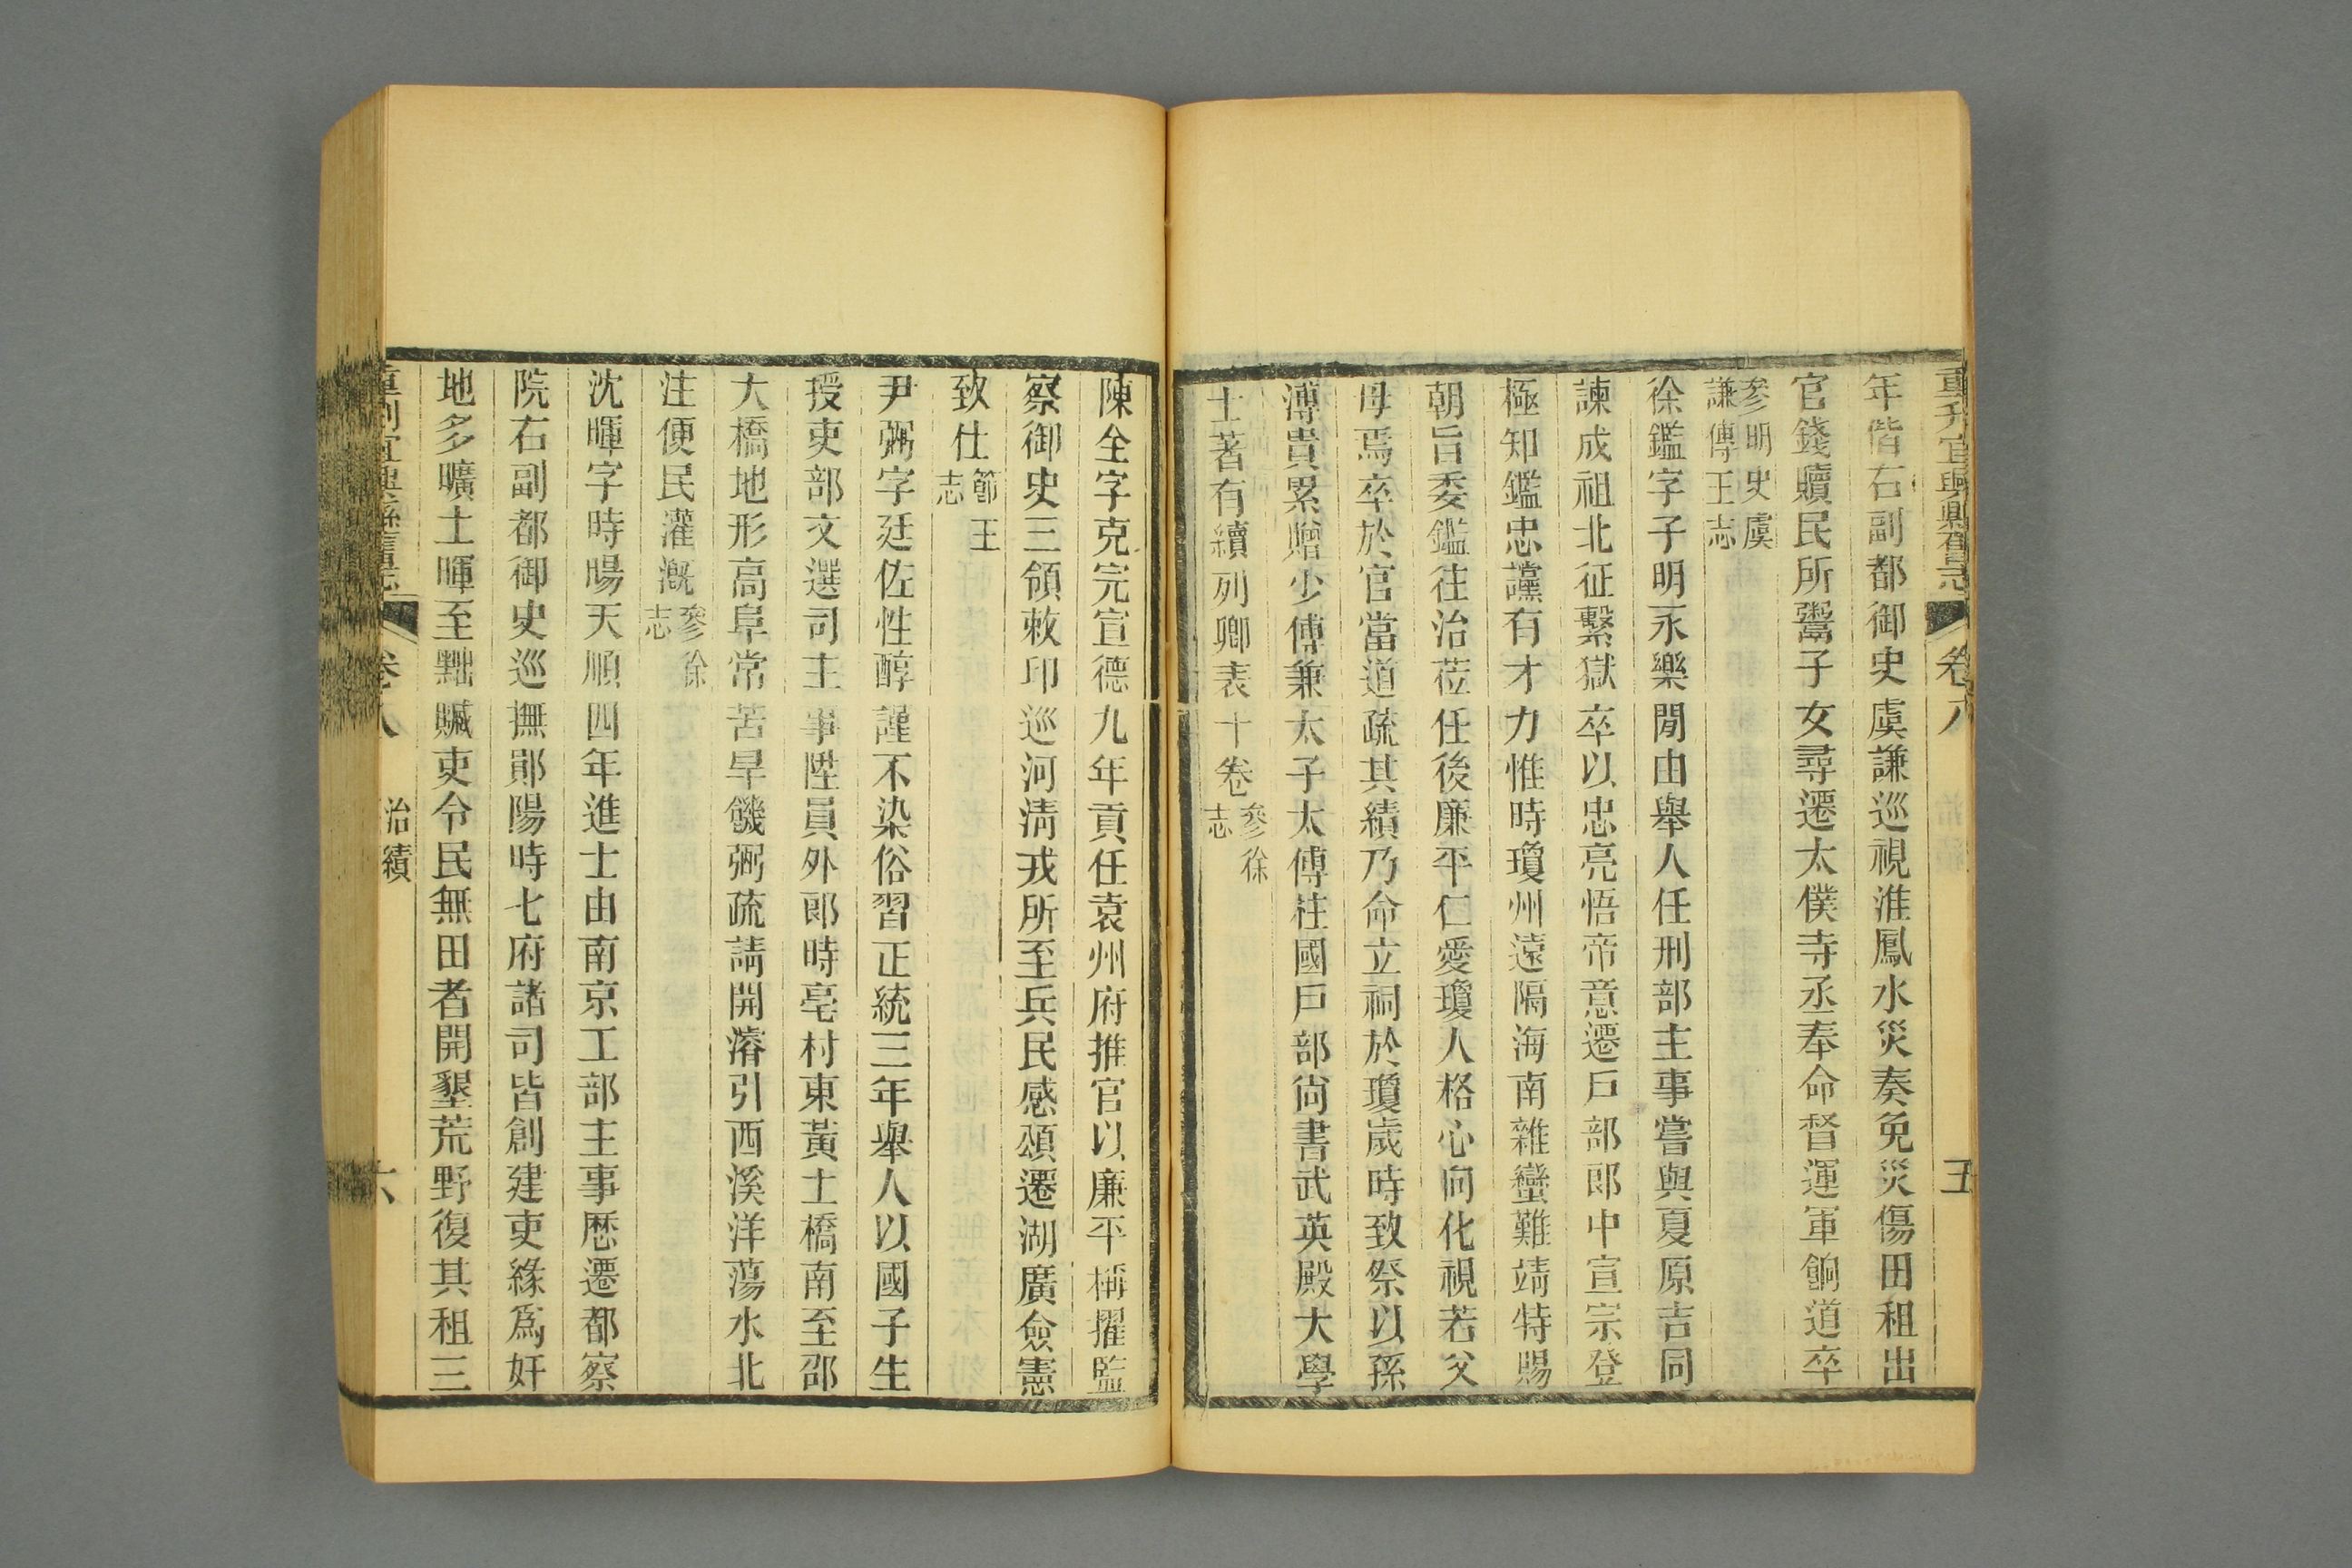 重刋宜興縣舊志 卷八 五
年偕右副都御史虞謙巡視淮鳳水災奏免災傷田租出
官錢贖民所鬻子女尋遷太僕寺丞奉命督運軍餉道卒
參明史虞
謙傳王志
徐鑑字子明永樂閒由舉人任刑部主事嘗與夏原吉同
諫成祖北征繫獄卒以忠亮悟帝意遷戶部郎中宣宗登
極知鑑忠讜有才力惟時瓊州遠隔海南雜蠻難靖特賜
朝旨委鑑往治莅任後廉平仁愛瓊人格心向化視若父
母焉卒於官當道疏其績乃命立祠於瓊歲時致祭以孫
溥貴累贈少傅兼太子太傅柱國戶部尙書武英殿大學
士著有續列卿表十卷
參徐
志
陳全字克完宣德九年貢任袁州府推官以廉平稱擢監
察御史三領敕印巡河淸戎所至兵民感頌遷湖廣僉憲
致仕
節王
志
尹弼字廷佐性醇謹不染俗習正統三年舉人以國子生
授吏部文選司主事陞員外郎時亳村東黃土橋南至邵
大橋地形高阜常苦旱饑弼疏請開濬引西溪洋蕩水北
注便民灌漑
參徐
志
沈暉字時暘天順四年進士由南京工部主事歷遷都察
院右副都御史巡撫鄖陽時七府諸司皆創建吏緣爲奸
地多曠土暉至黜贓吏令民無田者開墾荒野復其租三
重刋宜興縣舊志 卷八 治績 六